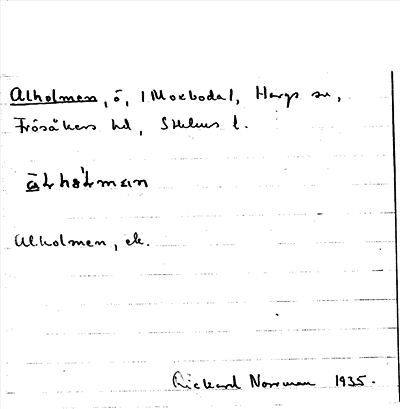 Alholmen, ö, i Morbodal, Hargs sn,
Frösåkers hd, Sthlms l.
Alholmen, ek.
Rickard Norrman 1935.